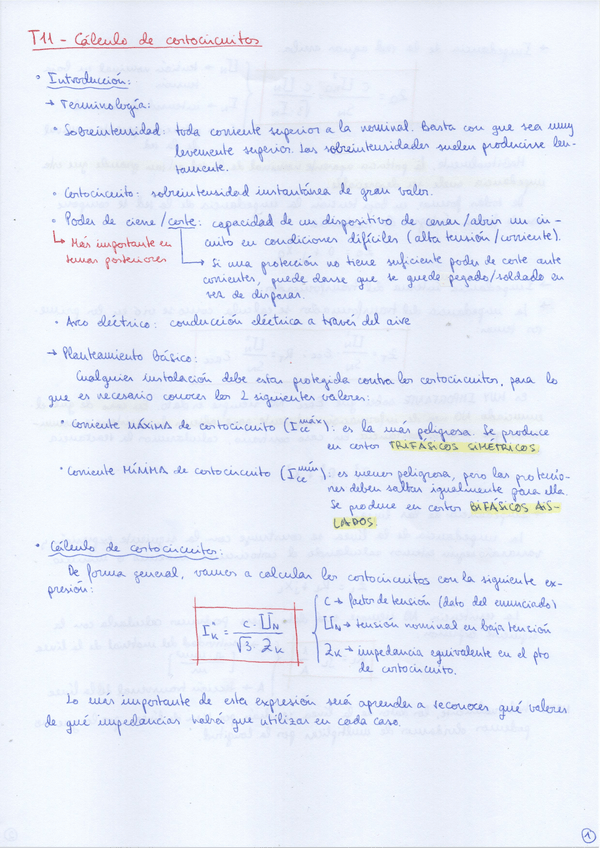 T11 - Cálculo de cortocircuitos
• Introducción:
→ Terminología:
• Sobreintensidad: toda corriente superior a la nominal. Basta con que sea muy
levemente superior. Las sobreintensidades suelen producirse len-
tamente.
• Cortocircuito: sobreintensidad instantánea de gran valor.
• Poder de cierre/corte: capacidad de un dispositivo de cerrar/abrir un cir-
cuito en condiciones difíciles (alta tensión/corriente).
↳ Más importante en
temas posteriores
→ Si una protección no tiene suficiente poder de corte ante
corrientes, puede darse que se quede pegado/soldado en
vez de disparar.
• Arco eléctrico: conducción eléctrica a través del aire
→ Planteamiento básico:
Cualquier instalación debe estar protegida contra los cortocircuitos, para lo
que es necesario conocer los 2 siguientes valores:
• Corriente MÁXIMA de cortocircuito (I_cc^máx): es la más peligrosa. Se produce
en cortos TRIFÁSICOS SIMÉTRICOS.
• Corriente MÍNIMA de cortocircuito (I_cc^mín): es menos peligrosa, pero las proteccio-
nes deben saltar igualmente para ella.
Se produce en cortos BIFÁSICOS AIS-
LADOS.
• Cálculo de cortocircuitos:
De forma general, vamos a calcular los cortocircuitos con la siguiente ex-
presión:
I_K" = c · U_N / √3 · Z_K
c → factor de tensión (dato del enunciado)
U_N → tensión nominal en baja tensión
Z_K → impedancia equivalente en el pto
de cortocircuito.
Lo más importante de esta expresión será aprender a reconocer qué valores
de qué impedancias habrá que utilizar en cada caso.
1